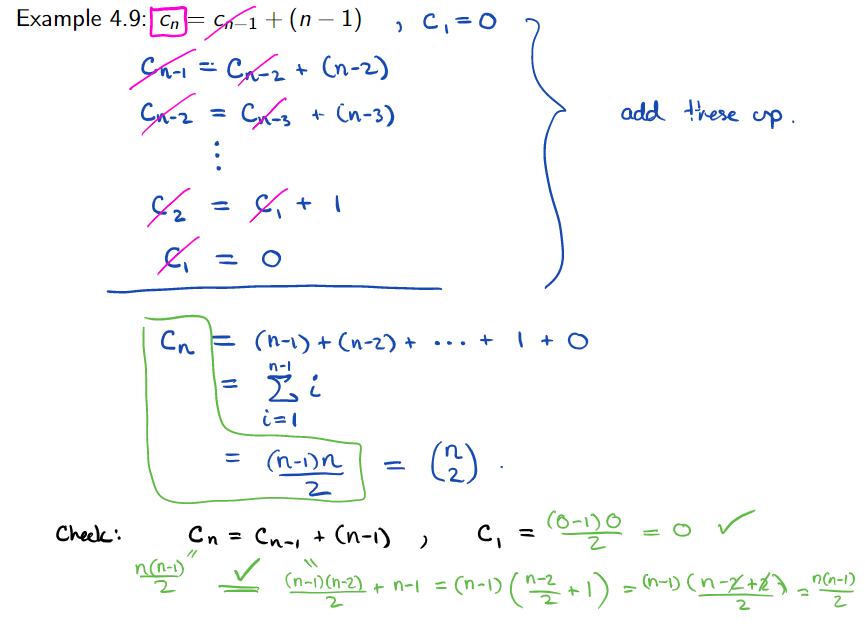 Example 4.9: cₙ = cₙ₋₁ + (n − 1) , C₁ = 0
Cₙ₋₁ = Cₙ₋₂ + (n-2)
Cₙ₋₂ = Cₙ₋₃ + (n-3)
⋮
add these up.
C₂ = C₁ + 1
C₁ = 0
Cₙ = (n-1) + (n-2) + ... + 1 + 0
= ∑_{i=1}^{n-1} i
= (n-1)n/2 = (n choose 2) .
Check: Cₙ = Cₙ₋₁ + (n-1) , C₁ = (0-1)0/2 = 0 ✓
n(n-1)/2 " ✓ " (n-1)(n-2)/2 + n-1 = (n-1)((n-2)/2 + 1) = (n-1)(n-2+2)/2 = n(n-1)/2